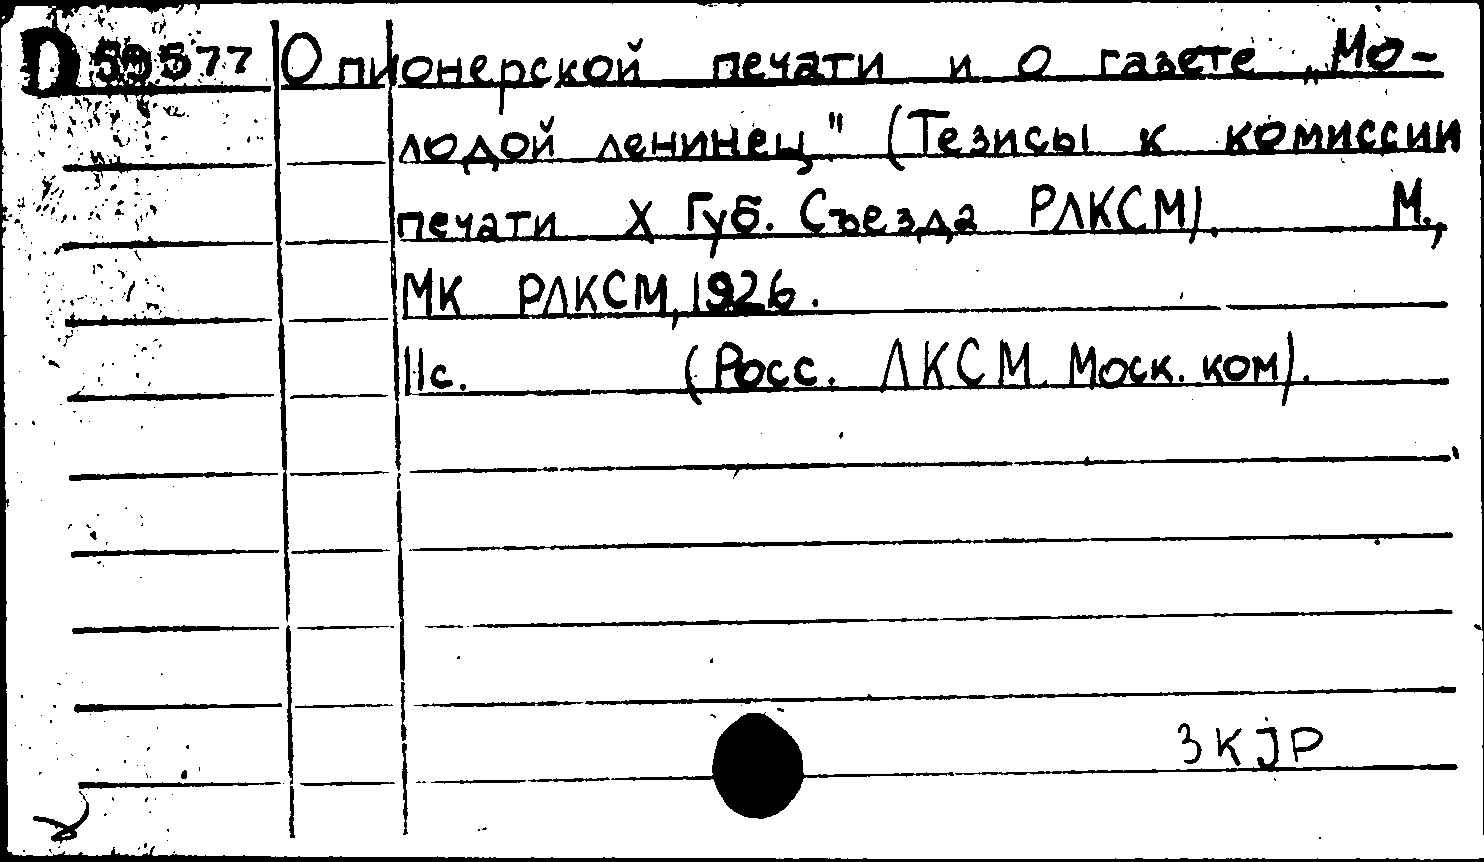 D 59577 О пионерской печати и о газете „Мо-
лодой ленинец" (Тезисы к комиссии
печати X Губ. Съезда РЛКСМ). М.,
МК РЛКСМ, 1926.
11с. (Росс. ЛКСМ. Моск. ком).